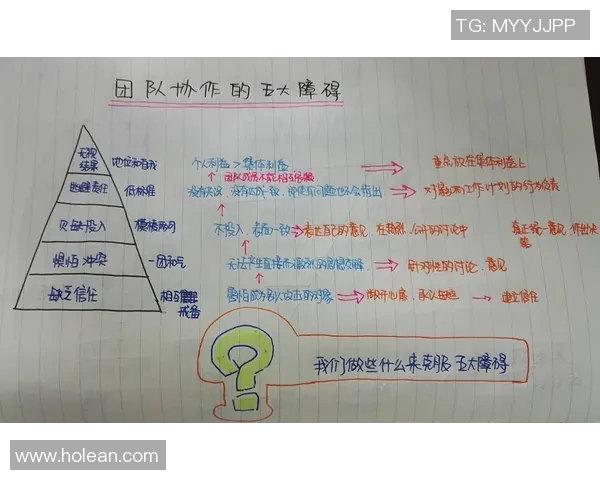 TG: MYYJJPP
团队协作的五大障碍
无视结果
地位和自我
个人利益 > 集体利益
重点放在集体利益上
团队成员不能相互
逃避责任
低标准
没有达成一致, 即使有问题也不会指出
对影响工作计划的行为负责
欠缺投入
模棱两可
不投入, 表面一致
表达自己的意见, 在激烈、公开的讨论中
真正统一意见, 作出决策
惧怕冲突
一团和气
无法产生直接而激烈的思想交锋
针对性的讨论、意见
缺乏信任
相互戒备
害怕成为别人攻击的对象
敞开心扉, 承认
建立信任
?
我们做些什么来克服五大障碍
www.holean.com